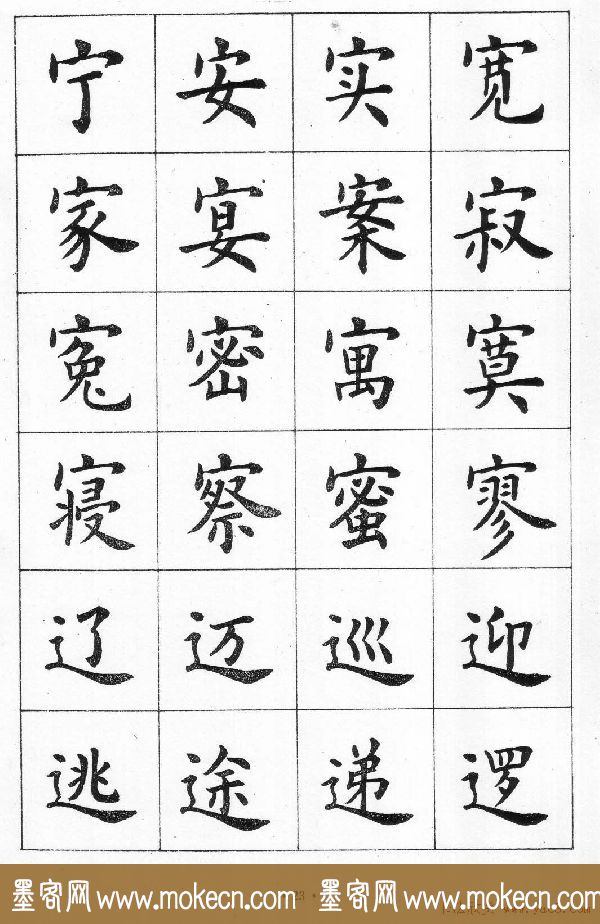 宁 安 实 宽
家 宴 案 寂
寃 密 寓 寞
寝 察 蜜 寥
辽 迈 巡 迎
逃 途 递 逻
墨客网 www.mokecn.com 墨客网 www.mokecn.com